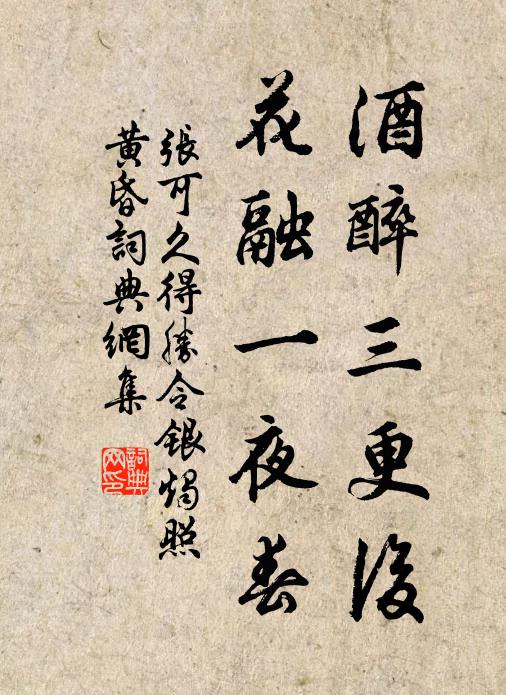 酒醉三更後
花融一夜春
張可久得勝令銀燭照
黃昏詞典網集
詞典
网印